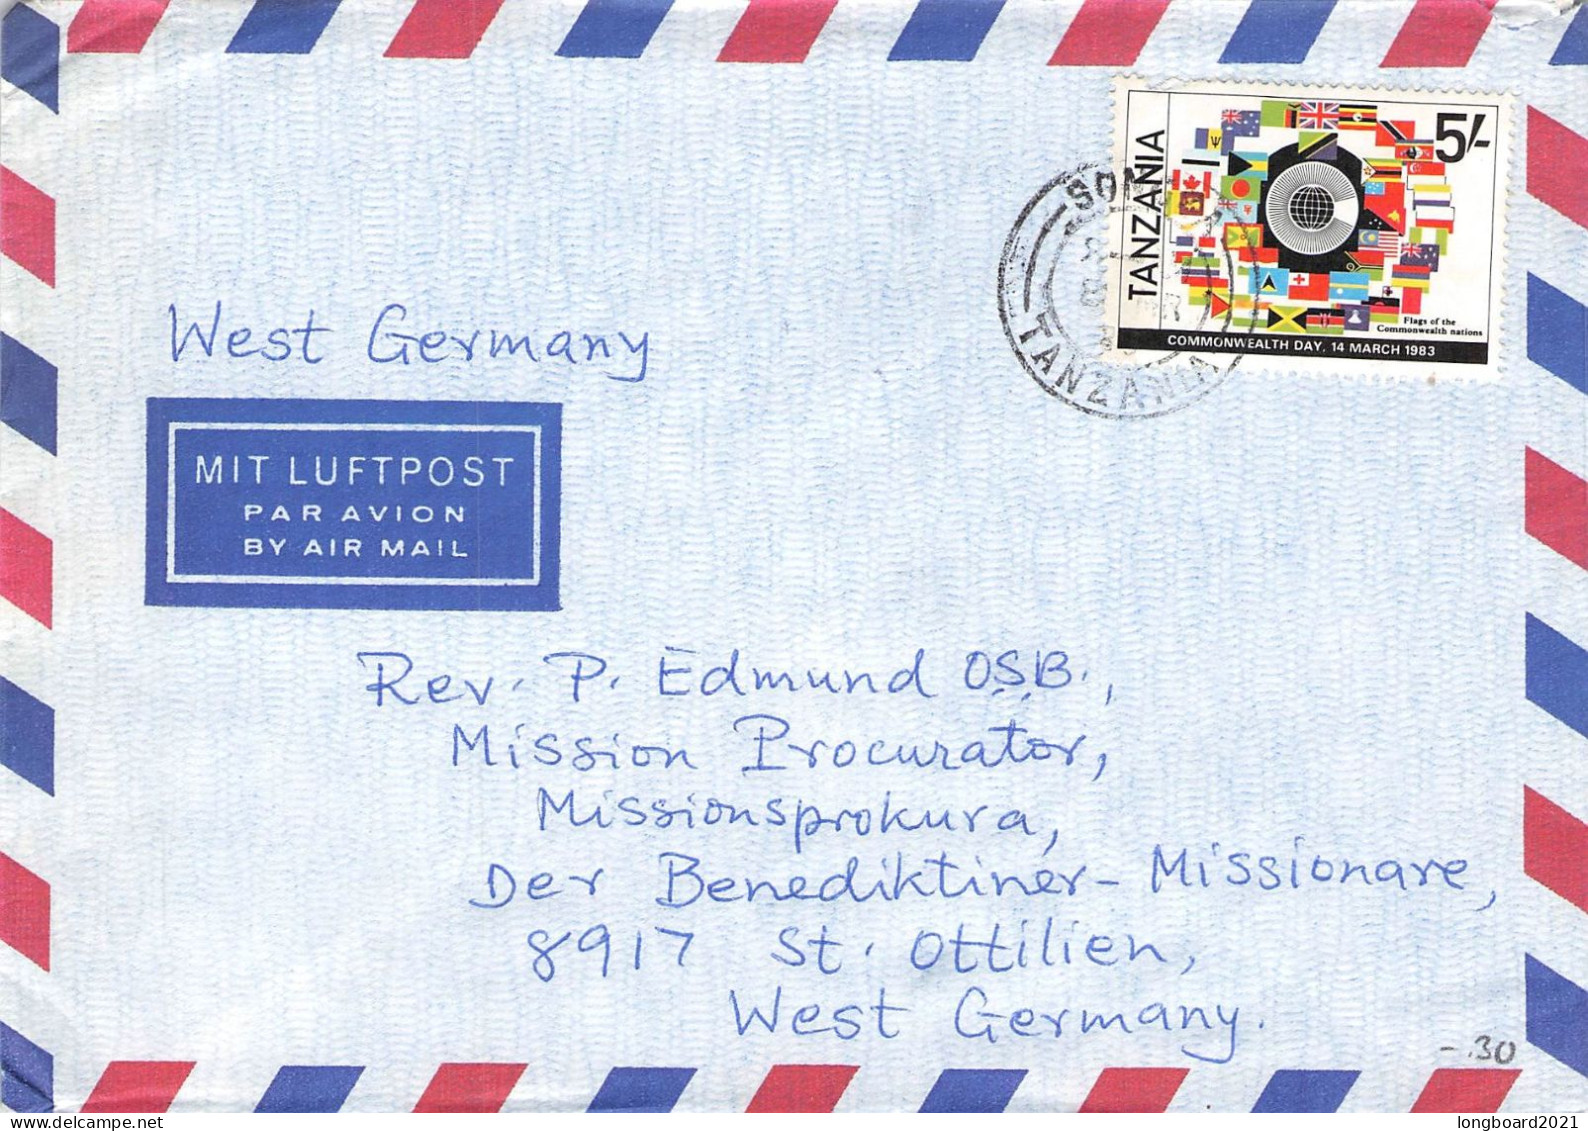 5/-
TANZANIA
Flags of the
Commonwealth nations
COMMONWEALTH DAY, 14 MARCH 1983
TANZANIA
West Germany
MIT LUFTPOST
PAR AVION
BY AIR MAIL
Rev. P. Edmund O.S.B.,
Mission Procurator,
Missionsprokura,
Der Benediktiner-Missionare,
8917 St. Ottilien,
West Germany.
-.30
longboard2021